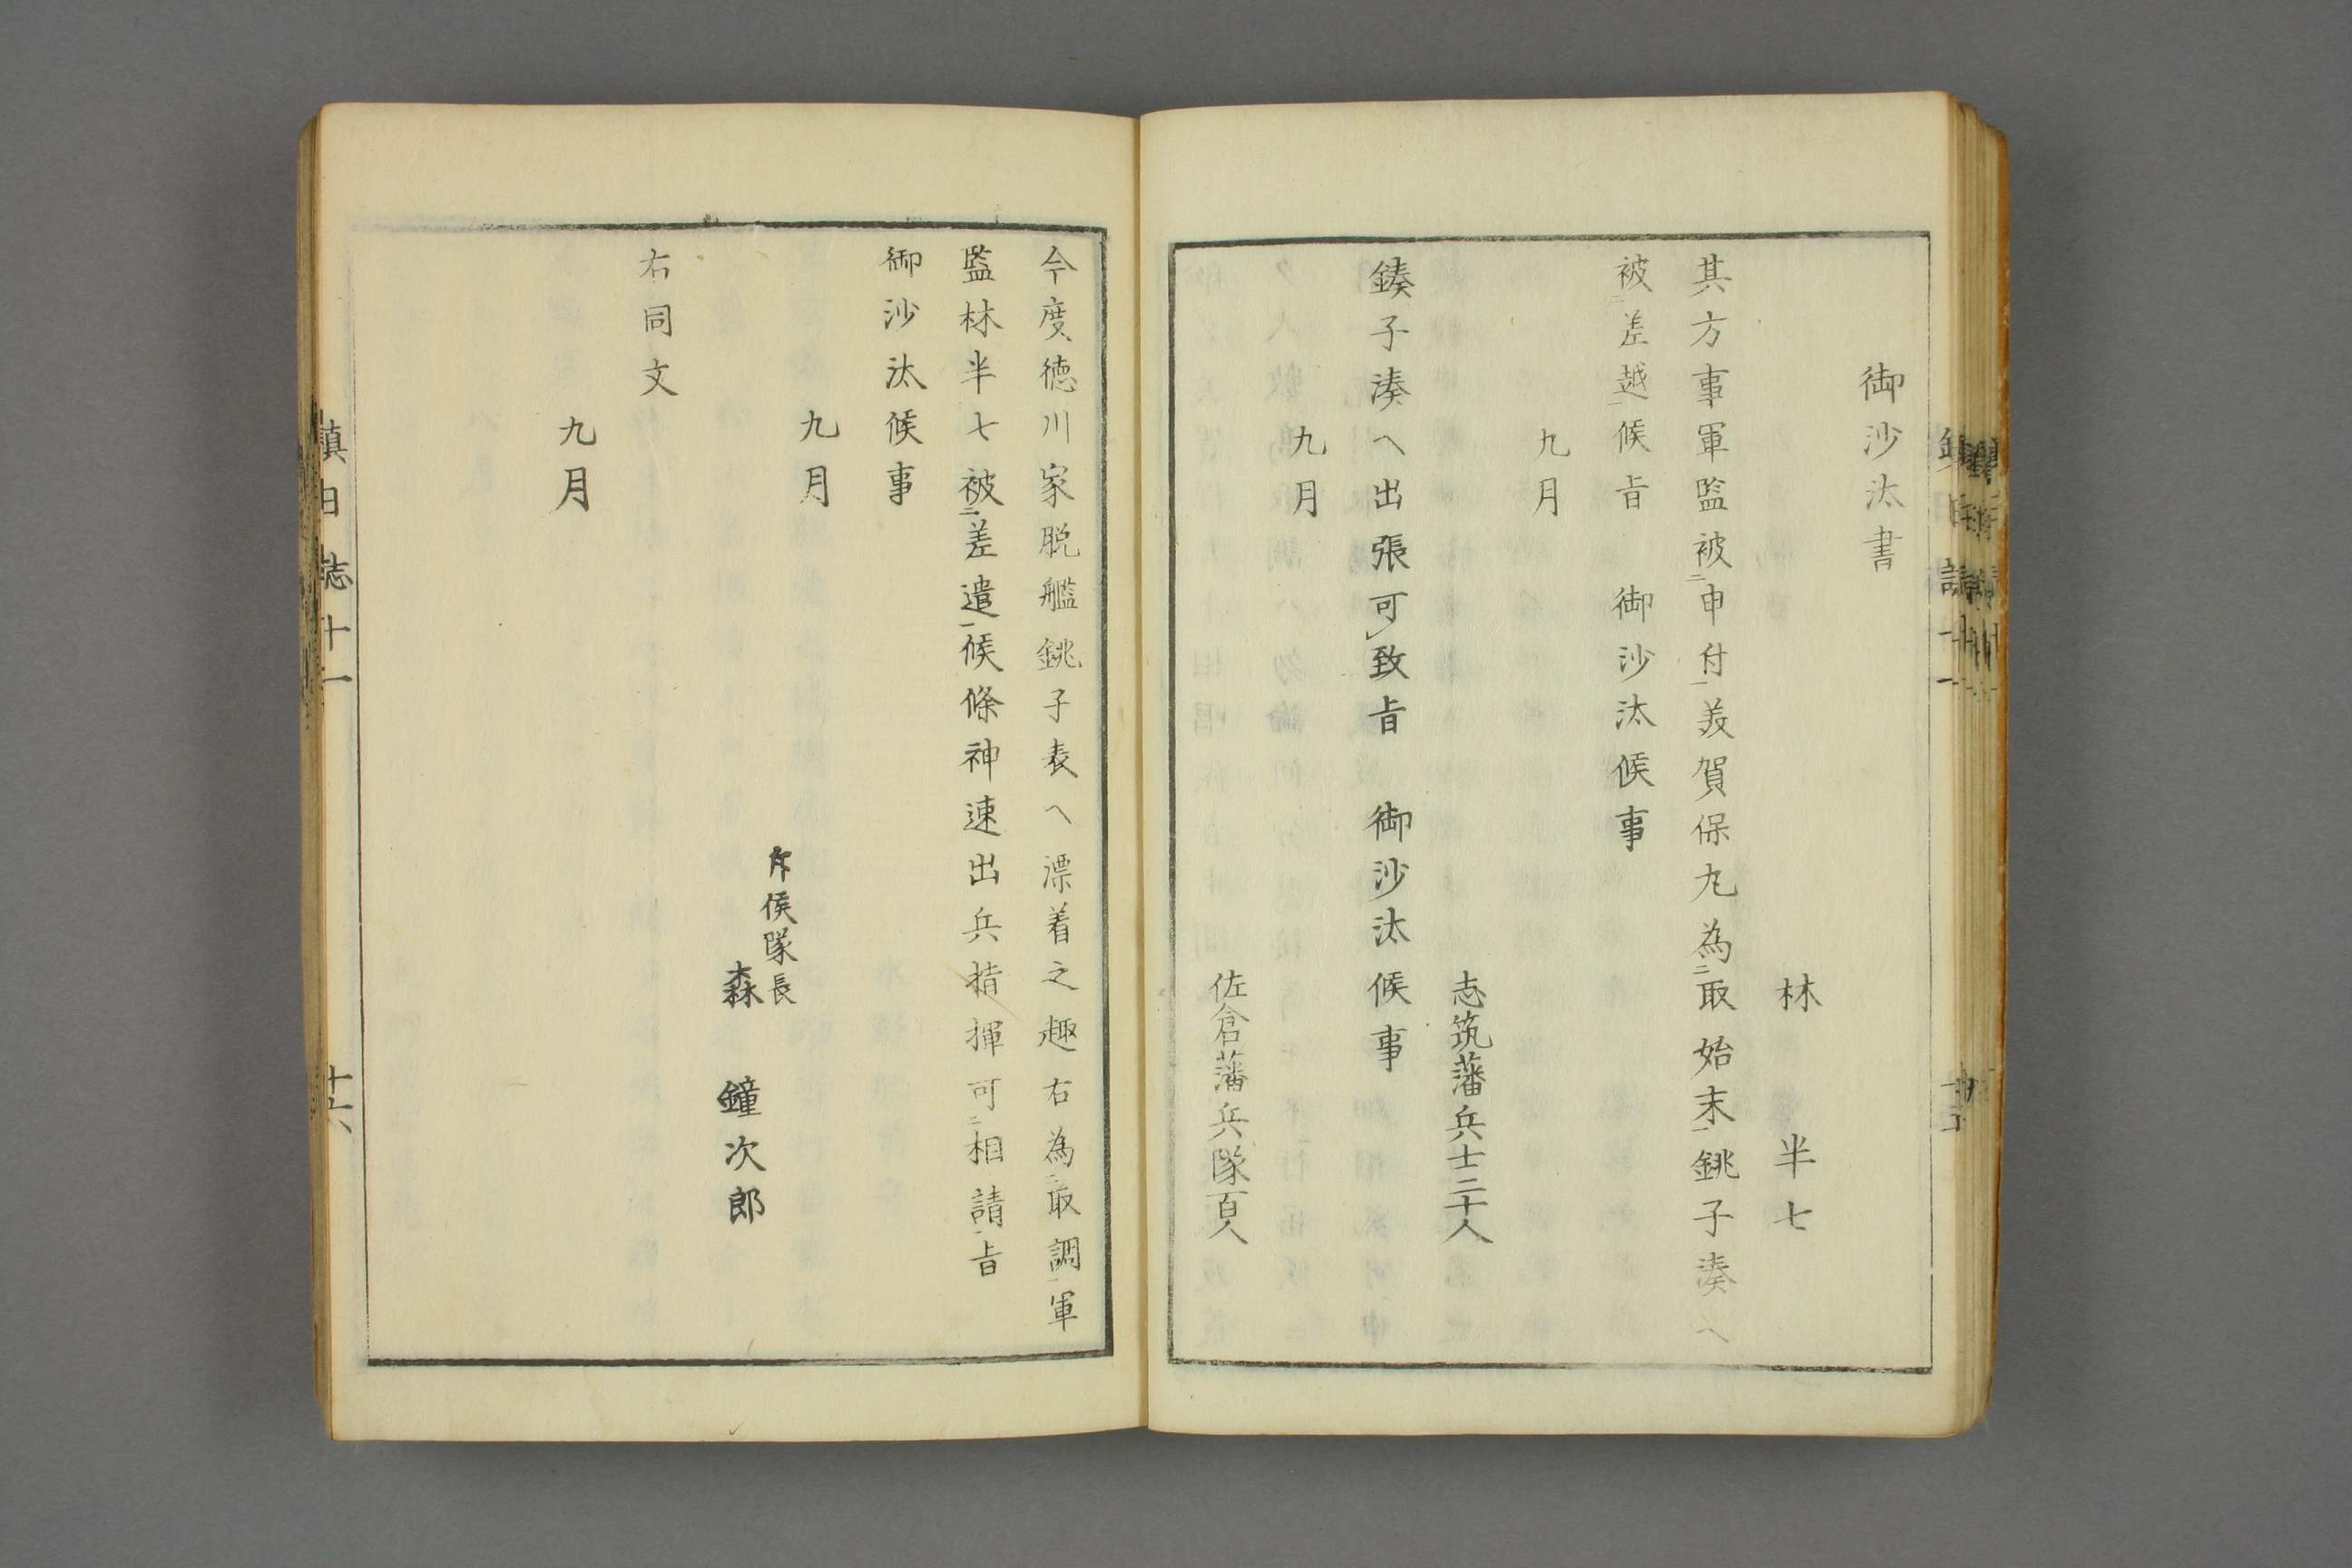 御沙汰書
林半七
其方事軍監被二申付一美賀保丸為二取始末一銚子湊ヘ
被二差越一候旨　御沙汰候事
九月
志筑藩兵士二十人
鏤子湊ヘ出張可レ致旨　御沙汰候事
九月
佐倉藩兵隊百人
今度徳川家脱艦銚子表ヘ漂着之趣右為二取調一軍
監林半七被二差遣一候條神速出兵指揮可二相請一旨
御沙汰候事
九月
斥候隊長
森鐘次郎
右同文
九月
鎮日誌十一
十六